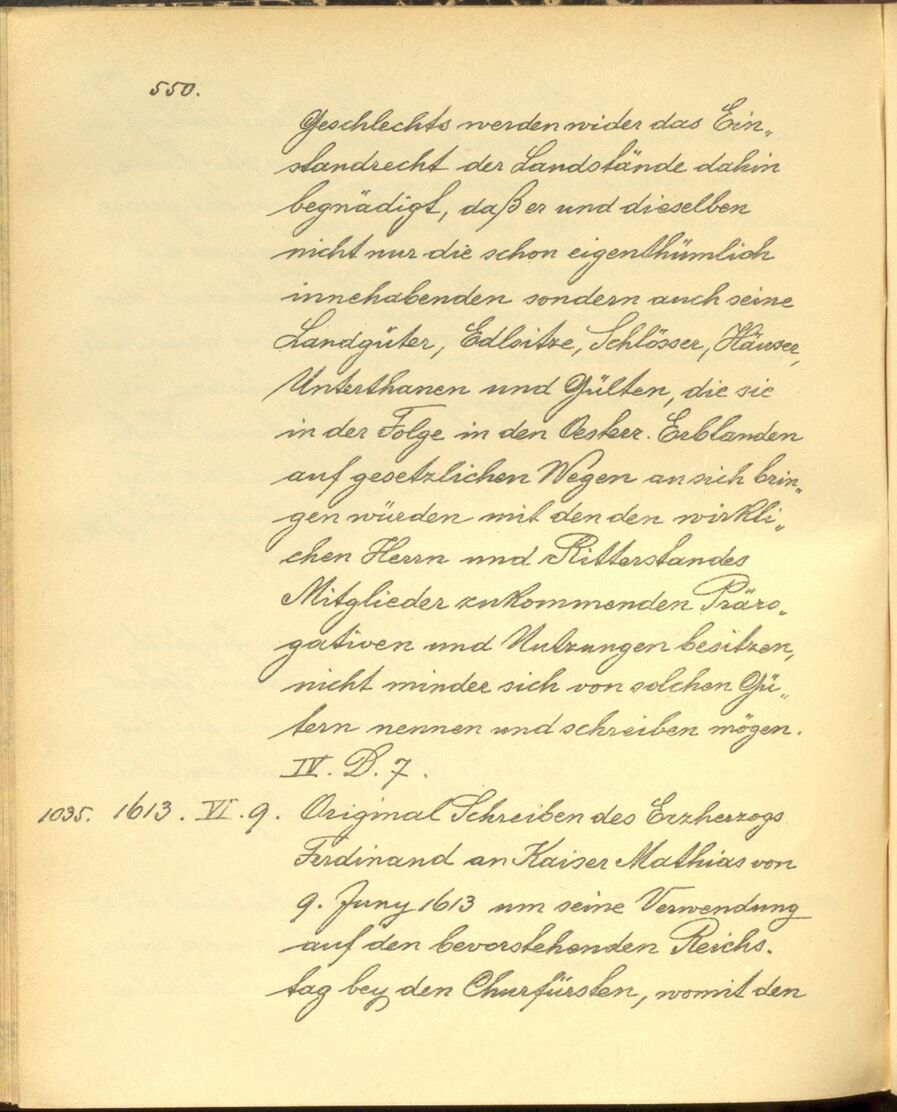 550.
Geschlechts werden wider das Ein„
standrecht der Landstände dahin
begnädigt, daß er und dieselben
nicht nur die schon eigenthümlich
innehabenden sondern auch seine
Landgüter, Edlsitze, Schlösser, Häuser,
Unterthanen und Gülten, die sie
in der Folge in den Oesterr. Erblanden
auf gesetzlichen Wegen an sich brin„
gen würden mit den den wirkli„
chen Herrn und Ritterstandes
Mitglieder zukommenden Präro„
gativen und Nutzungen besitzen,
nicht minder sich von solchen Gü„
tern nennen und schreiben mögen.
IV. D. 7.
1035. 1613. VI. 9. Original Schreiben des Erzherzogs
Ferdinand an Kaiser Mathias von
9. Juny 1613 um seine Verwendung
auf den bevorstehenden Reichs.
tag bey den Churfürsten, womit den